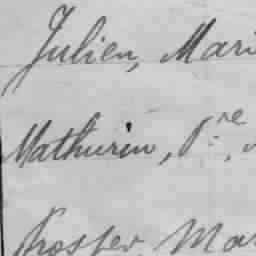 Julien, Mari
Mathurin, P.re,
Prosper, Mar